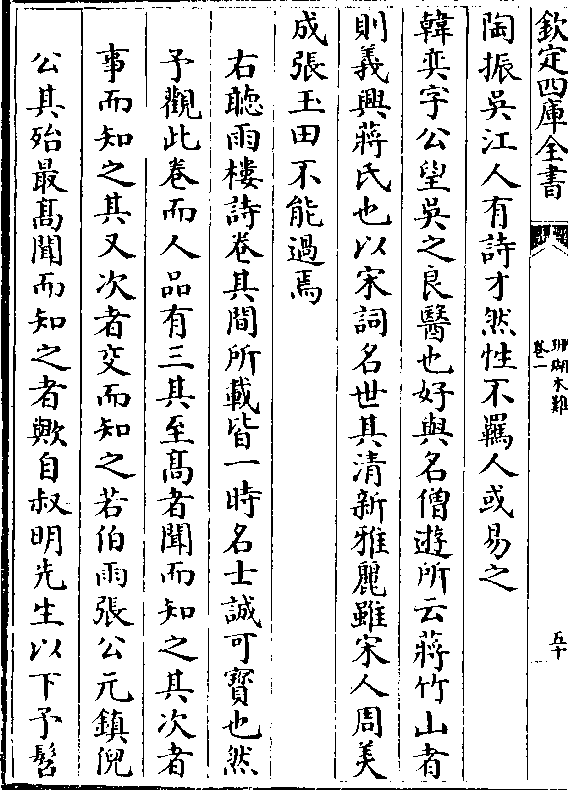 欽定四庫全書
珊瑚木難
卷一
五十
陶振吳江人有詩才然性不羈人或易之
韓奕字公望吳之良醫也好與名僧遊所云蔣竹山者
則義興蔣氏也以宋詞名世其清新雅麗雖宋人周美
成張玉田不能過焉
右聽雨樓詩卷其間所載皆一時名士誠可寳也然
予觀此卷而人品有三其至髙者聞而知之其次者
事而知之其又次者交而知之若伯雨張公元鎮倪
公其殆最髙聞而知之者歟自叔明先生以下予髫